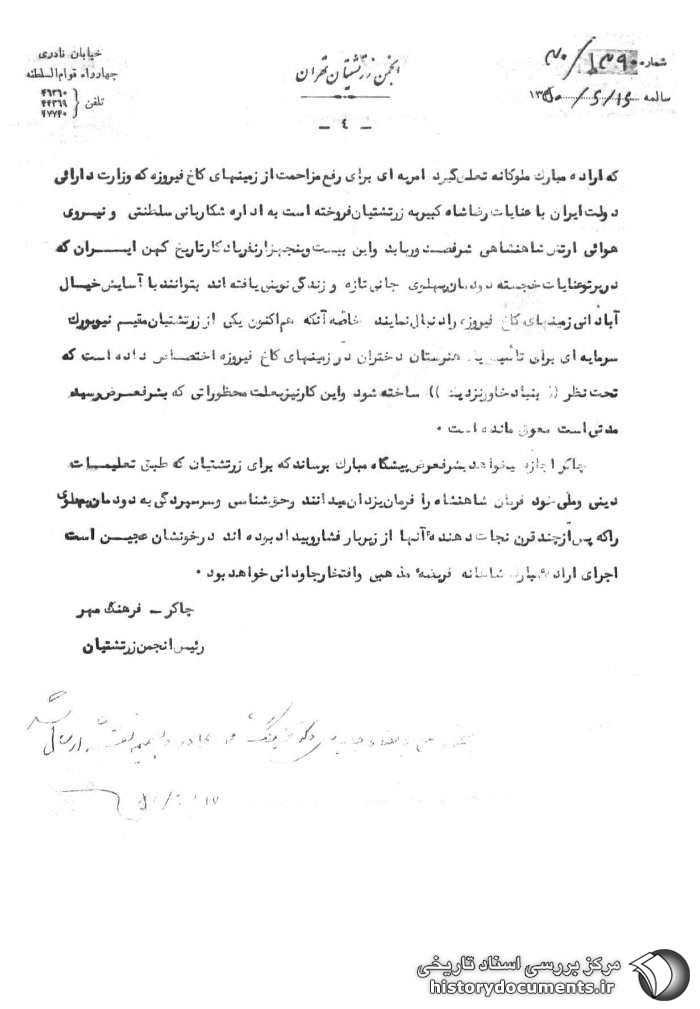 انجمن زرتشتیان تهران
خیابان نادری
چهارراه قوام السلطنه
تلفن
۴۶۳۶۰
۴۴۳۶۹
۴۷۷۴۰
شماره
سالمه
- ۴ -
که اراده مبارك ملوکانه تعلق گیرد امریه ای برای رفع مزاحمت از زمینهای کاخ فیروزه که وزارت دارائی
دولت ایران با عنایات رضا شاه کبیر به زرتشتیان فروخته است به اداره شکاربانی سلطنتی و نیروی
هوائی ارتش شاهنشاهی شرفصدور یابد واین بیست وپنجهزار نفر یادگار تاریخ کهن ایران که
در پرتو عنایات خجسته دودمان پهلوی جانی تازه و زندگی نوینی یافته اند بتوانند با آسایش خیال
آبادانی زمینهای کاخ فیروزه را دنبال نمایند خاصّه آنکه هم اکنون یکی از زرتشتیان مقیم نیویورك
سرمایه ای برای تأسیس یك هنرستان دختران در زمینهای کاخ فیروزه اختصاص داده است که
تحت نظر (( بنیاد خاور نزدیك )) ساخته شود واین کار نیز بعلت محظوراتی که بشرفعرض رسید
مدتی است معوق مانده است ۰
چاکر اجازه میخواهد بشرفعرض پیشگاه مبارك برساند که برای زرتشتیان که طبق تعلیمات
دینی وملی خود فرمان شاهنشاه را فرمان یزدان میدانند وحق شناسی وسرسپردگی به دودمان پهلوی
را که پس از چند قرن نجات دهندهٔ آنها از زیربار فشار وبیداد بوده اند در خونشان عجین است
اجرای ارادهٔ مبارك شاهانه فریضهٔ مذهبی وافتخار جاودانی خواهد بود ۰
چاکر - فرهنگ مهر
رئیس انجمن زرتشتیان
مرکز بررسی اسناد تاریخی
historydocuments.ir